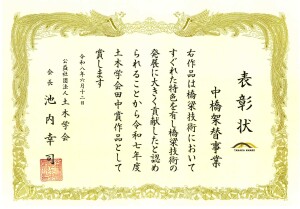 表彰状
中橋架替事業
右作品は橋梁技術において
すぐれた特色を有し橋梁技術の
発展に大きく貢献したと認め
られることから令和七年度
土木学会田中賞作品として
賞します
令和八年六月十二日
公益社団法人土木学会
会長 池内幸司